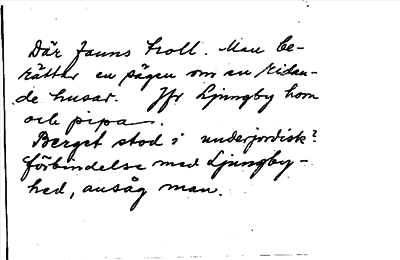 Där fanns troll. Man be-
rättar en sägen om en ridan-
de husar. Jfr Ljungby horn
och pipa.
Berget stod i underjordisk?
förbindelse med Ljungby-
hed, ansåg man.